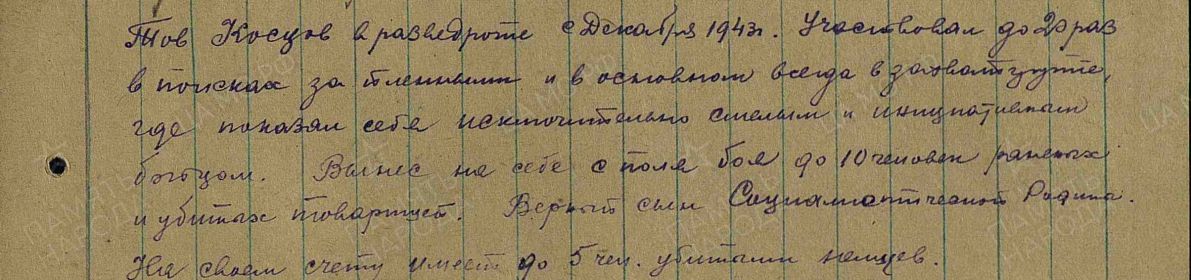 Тов Косцов в разведроте с Декабря 1943г. Участвовал до 20 раз
в поисках за пленными и в основном всегда в захватгруппе,
где показал себя исключительно смелым и инициативным
бойцом. Вынес на себе с поля боя до 10 человек раненых
и убитых товарищей. Верный сын Социалистической Родины.
На своем счету имеет до 5 чел. убитыми немцев.